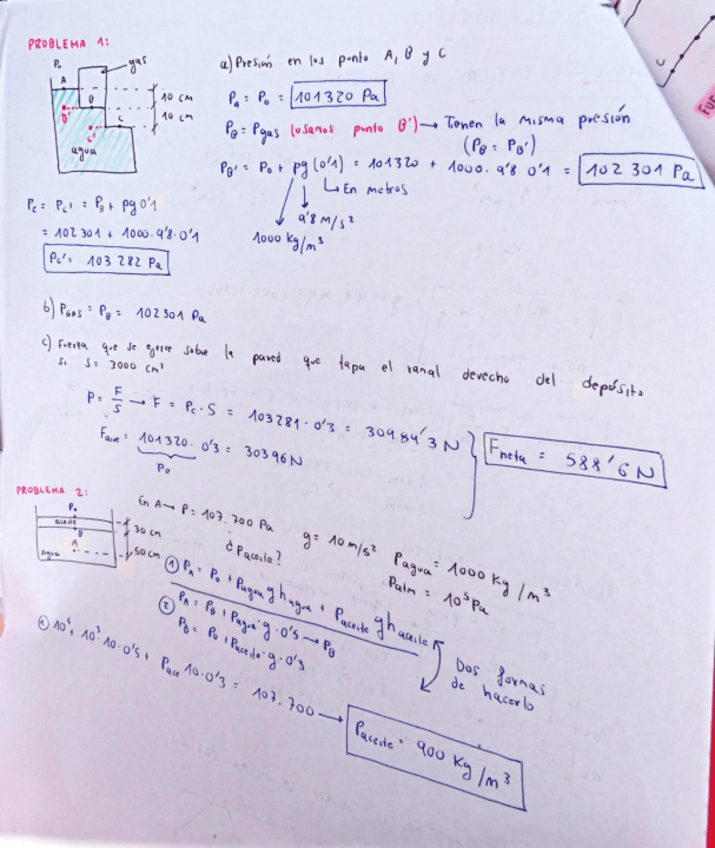 PROBLEMA 1:
P₀
gas
A
B
10 cm
B'
C
10 cm
C'
agua
a) Presión en los punto A, B y C
P_A = P₀ = 101320 Pa
P_B = Pgas (usamos punto B') → Tienen la misma presión
(P_B = P_B')
P_B' = P₀ + ρg (0'1) = 101320 + 1000 · 9'8 · 0'1 = 102 301 Pa
↳ En metros
9'8 m/s²
1000 kg/m³
P_C = P_C' = P_B + ρg 0'1
= 102 301 + 1000 · 9'8 · 0'1
P_C' = 103 282 Pa
b) P_GAS = P_B = 102 301 Pa
c) Fuerza que se ejerce sobre la pared que tapa el ranal derecho del depósito
si S = 3000 cm²
P = F/S → F = P_C · S = 103281 · 0'3 = 30984'3 N
F = 101320 · 0'3 = 30396 N
P₀
F neta = 588'6 N
PROBLEMA 2:
P₀
aceite
B
30 cm
A
agua
50 cm
En A → P = 107.700 Pa g = 10 m/s² ρagua = 1000 kg/m³
¿ρaceite? Patm = 10⁵ Pa
① P_A = P₀ + ρagua g hagua + ρaceite g haceite
② P_A = P_B + ρagua · g · 0'5 → P_B
P_B = P₀ + ρaceite · g · 0'3
Dos formas
de hacerlo
① 10⁵ + 10³ · 10 · 0'5 + ρace 10 · 0'3 = 107.700 → ρaceite = 900 kg/m³
C